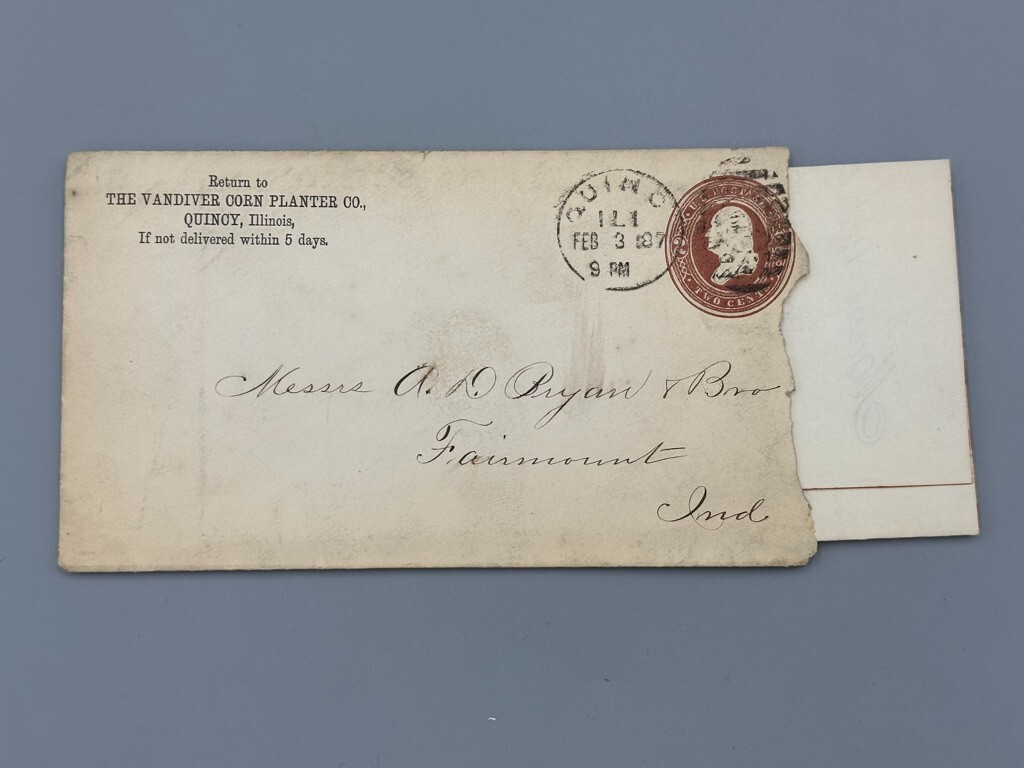 Return to
THE VANDIVER CORN PLANTER CO.,
QUINCY, Illinois,
If not delivered within 5 days.
QUINC
ILL
FEB 3 87
9 PM
U.S. POSTAGE
TWO CENTS
Messrs A. D. Bryan & Bro
Fairmount
Ind